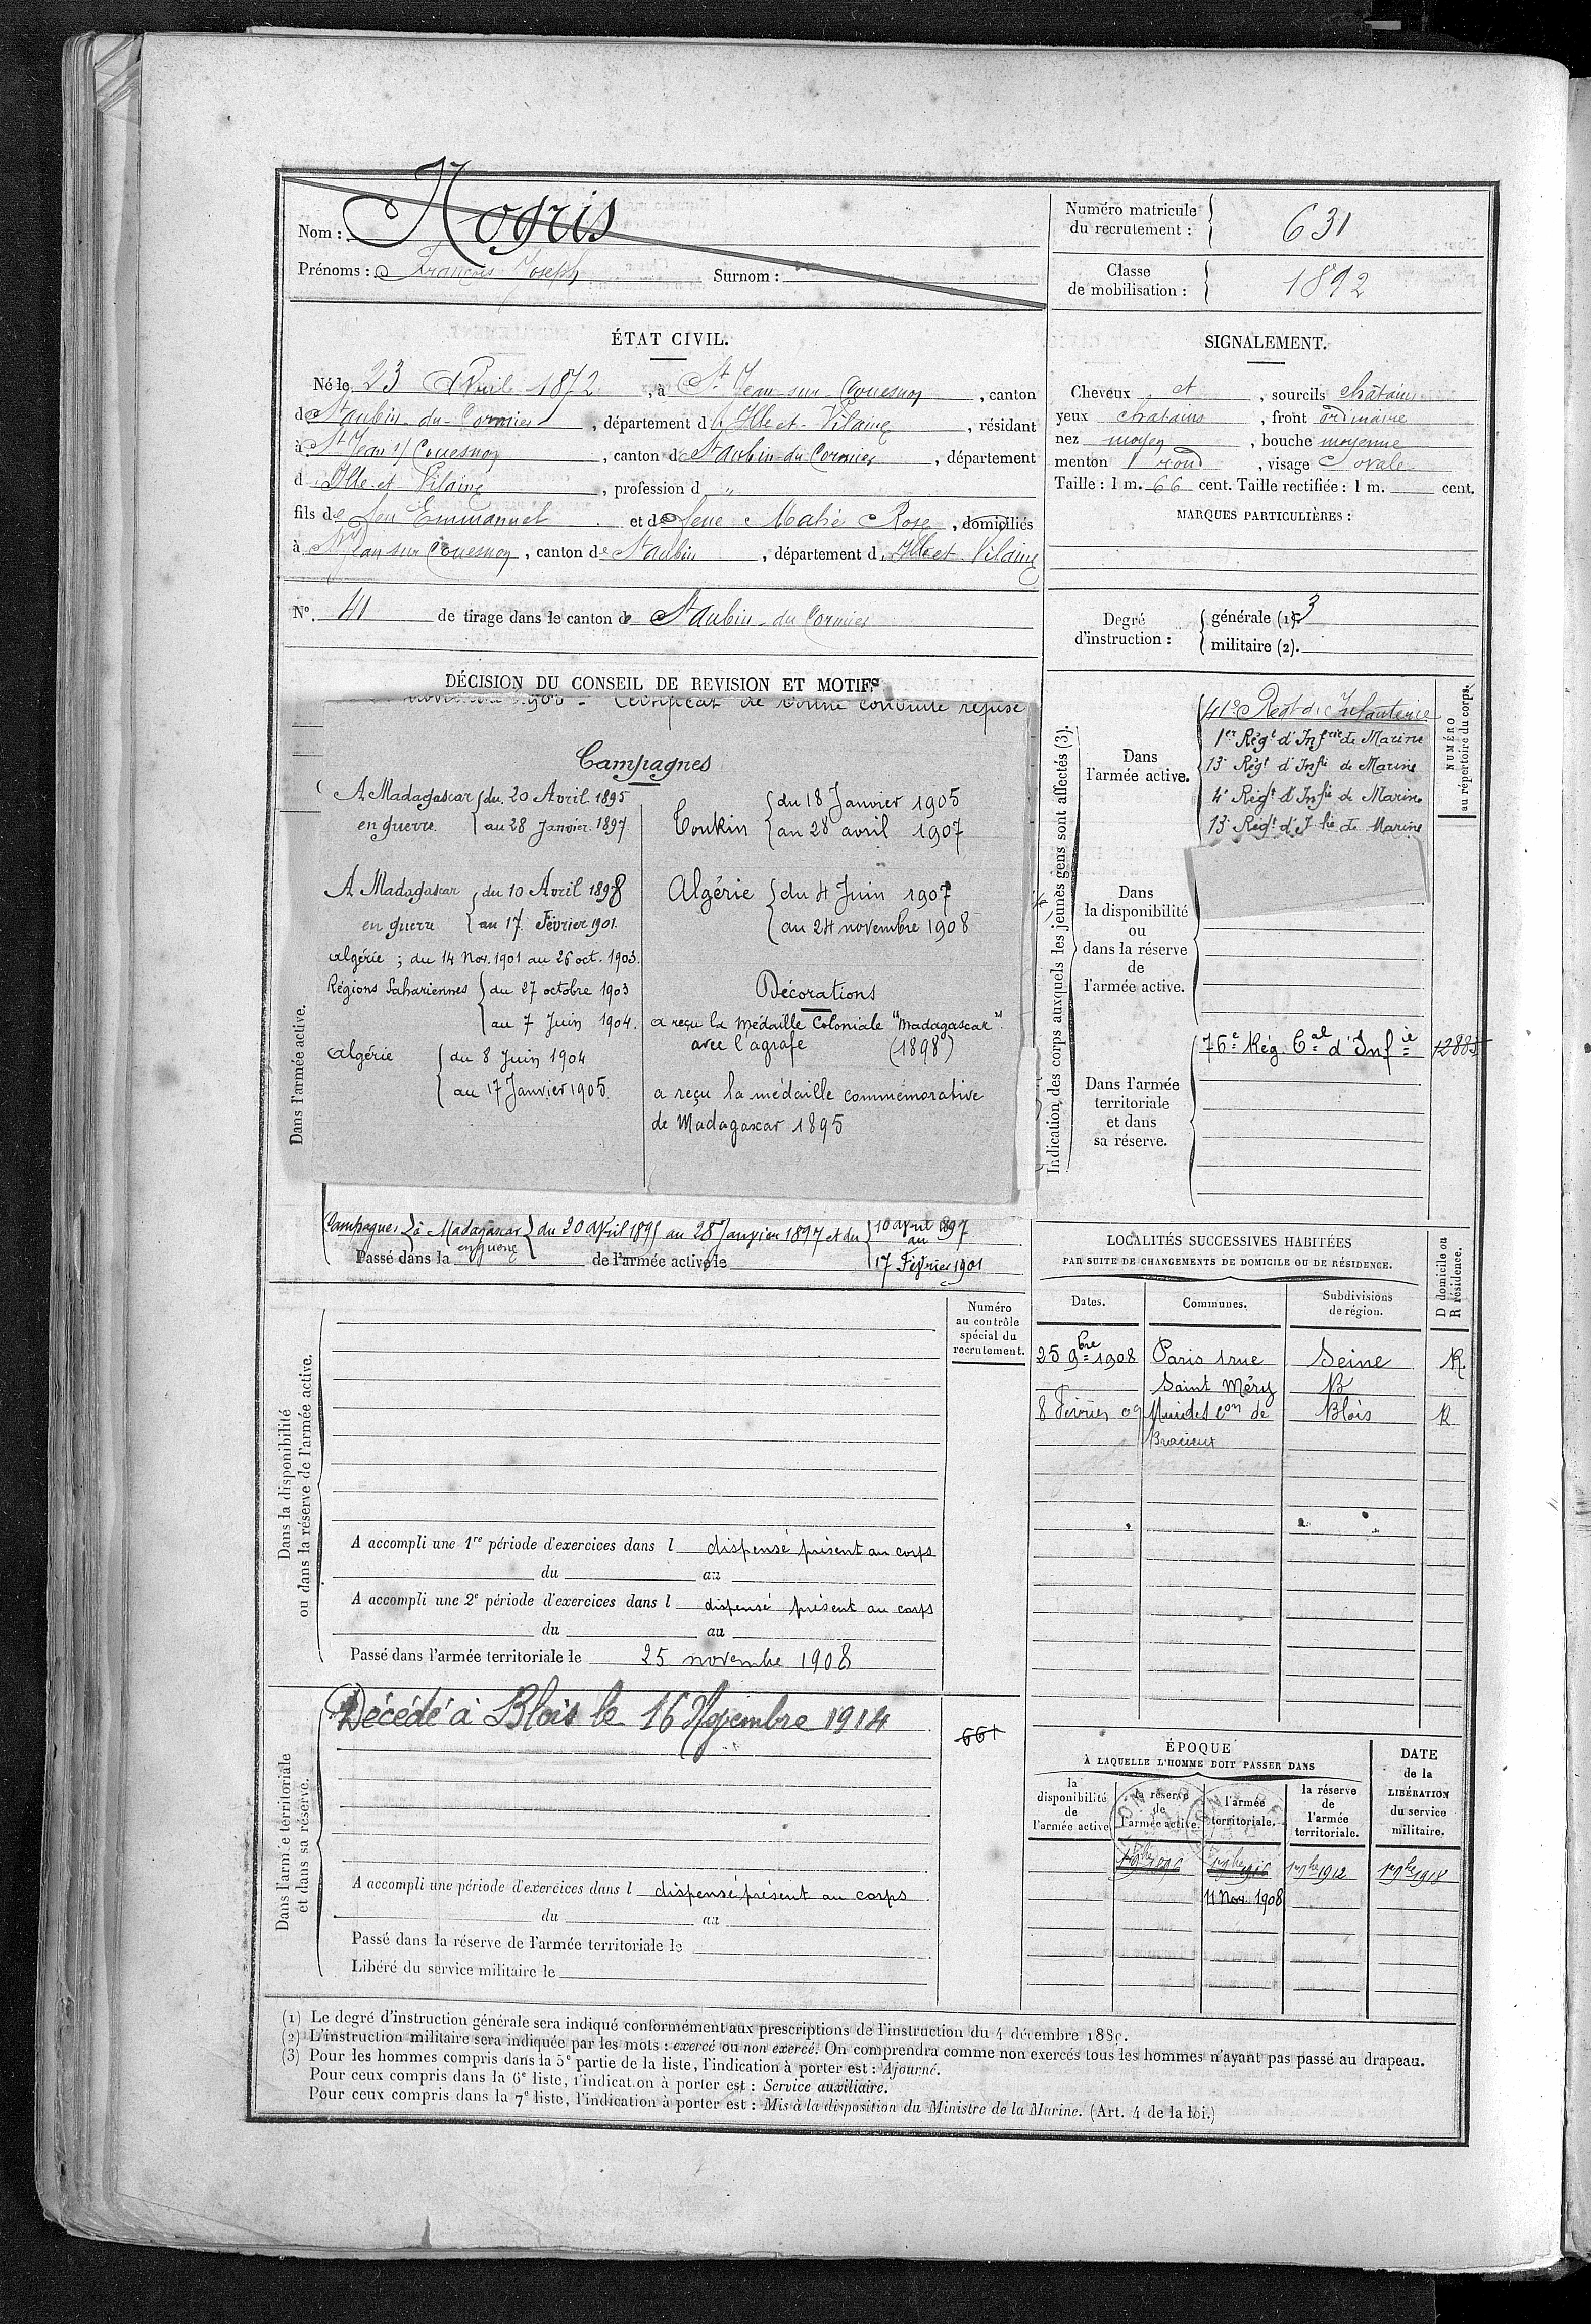 Nom : Nogris
Prénoms : François Joseph Surnom :
Numéro matricule du recrutement : 631
Classe de mobilisation : 1892
ÉTAT CIVIL.
Né le 23 Avril 1872, à St Jean sur Couesnon, canton
de St aubin du Cormier, département d'Ille et Vilaine, résidant
à St Jean s/ Couesnon, canton de St aubin du Cormier, département
d'Ille et Vilaine, profession d "
fils de feu Emmanuel et de feue Mahé Rose, domiciliés
à St Jean sur Couesnon, canton de St aubin, département d'Ille et Vilaine
N° 41 de tirage dans le canton de St Aubin du Cormier
SIGNALEMENT.
Cheveux et, sourcils châtains
yeux châtains, front ordinaire
nez moyen, bouche moyenne
menton rond, visage ovale
Taille : 1 m. 66 cent. Taille rectifiée : 1 m. cent.
MARQUES PARTICULIÈRES :
Degré d'instruction :
générale (1). 3
militaire (2).
DÉCISION DU CONSEIL DE REVISION ET MOTIFS
1906 - Certificat de bonne conduite refusé
Campagnes
A Madagascar du 20 Avril 1895
en guerre au 28 Janvier 1897
A Madagascar du 10 Avril 1898
en guerre au 17 Février 1901
Algérie ; du 14 Nov. 1901 au 26 oct. 1903.
Régions Sahariennes du 27 octobre 1903
au 7 Juin 1904.
Algérie du 8 Juin 1904
au 17 Janvier 1905
Tonkin du 18 Janvier 1905
au 28 avril 1907
Algérie du 4 Juin 1907
au 24 novembre 1908
Décorations
a reçu la médaille Coloniale "Madagascar".
avec l'agrafe (1898)
a reçu la médaille commémorative
de Madagascar 1895
Dans l'armée active.
Campagnes à Madagascar en guerre du 20 avril 1895 au 28 Janvier 1897 et du 10 avril 1897 au 17 Février 1901
Passé dans la de l'armée active le
Indication des corps auxquels les jeunes gens sont affectés (3).
Dans l'armée active.
41e Regt d'Infanterie
1er Régt d'Infrie de Marine
13e Régt d'Infie de Marine
4e Régt d'Infie de Marine
13e Régt d'Ifie de Marine
NUMÉRO au répertoire du corps.
Dans la disponibilité ou dans la réserve de l'armée active.
Dans l'armée territoriale et dans sa réserve.
76e Rég. Cal d'Infie 12885
LOCALITÉS SUCCESSIVES HABITÉES
PAR SUITE DE CHANGEMENTS DE DOMICILE OU DE RÉSIDENCE.
Dates. Communes. Subdivisions de région. D domicile ou R résidence.
25 9bre 1908 Paris 1 rue Seine R.
Saint Méry
8 Février 09 Muides Con de Blois R
Bracieux
Dans la disponibilité ou dans la réserve de l'armée active.
Numéro au contrôle spécial du recrutement.
A accompli une 1re période d'exercices dans l dispensé présent au corps
du au
A accompli une 2e période d'exercices dans l dispensé présent au corps
du au
Passé dans l'armée territoriale le 25 novembre 1908
Dans l'armée territoriale et dans sa réserve.
Décédé à Blois le 16 Novembre 1914
661
A accompli une période d'exercices dans l dispensé présent au corps
du au
Passé dans la réserve de l'armée territoriale le
Libéré du service militaire le
ÉPOQUE
À LAQUELLE L'HOMME DOIT PASSER DANS
la disponibilité de l'armée active
la réserve de l'armée active.
l'armée territoriale.
la réserve de l'armée territoriale.
DATE de la LIBÉRATION du service militaire.
1er 9bre 1912 1er 9bre 1918
11 Nov. 1908
(1) Le degré d'instruction générale sera indiqué conformément aux prescriptions de l'instruction du 4 décembre 1889.
(2) L'instruction militaire sera indiquée par les mots : exercé ou non exercé. On comprendra comme non exercés tous les hommes n'ayant pas passé au drapeau.
(3) Pour les hommes compris dans la 5e partie de la liste, l'indication à porter est : Ajourné.
Pour ceux compris dans la 6e liste, l'indication à porter est : Service auxiliaire.
Pour ceux compris dans la 7e liste, l'indication à porter est : Mis à la disposition du Ministre de la Marine. (Art. 4 de la loi.)